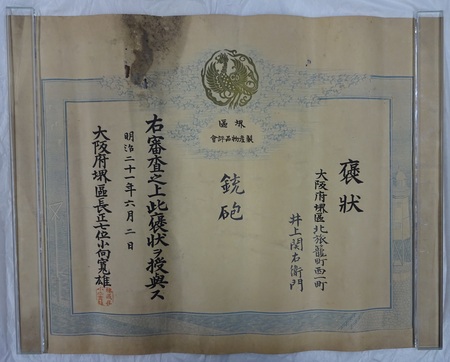 褒狀
大阪府堺區北旅籠町西一町
井上関右衛門
堺區
製産物品評會
銃砲
右審査之上此褒狀ヲ授與ス
明治二十一年六月二日
大阪府堺區長正七位小向寬雄